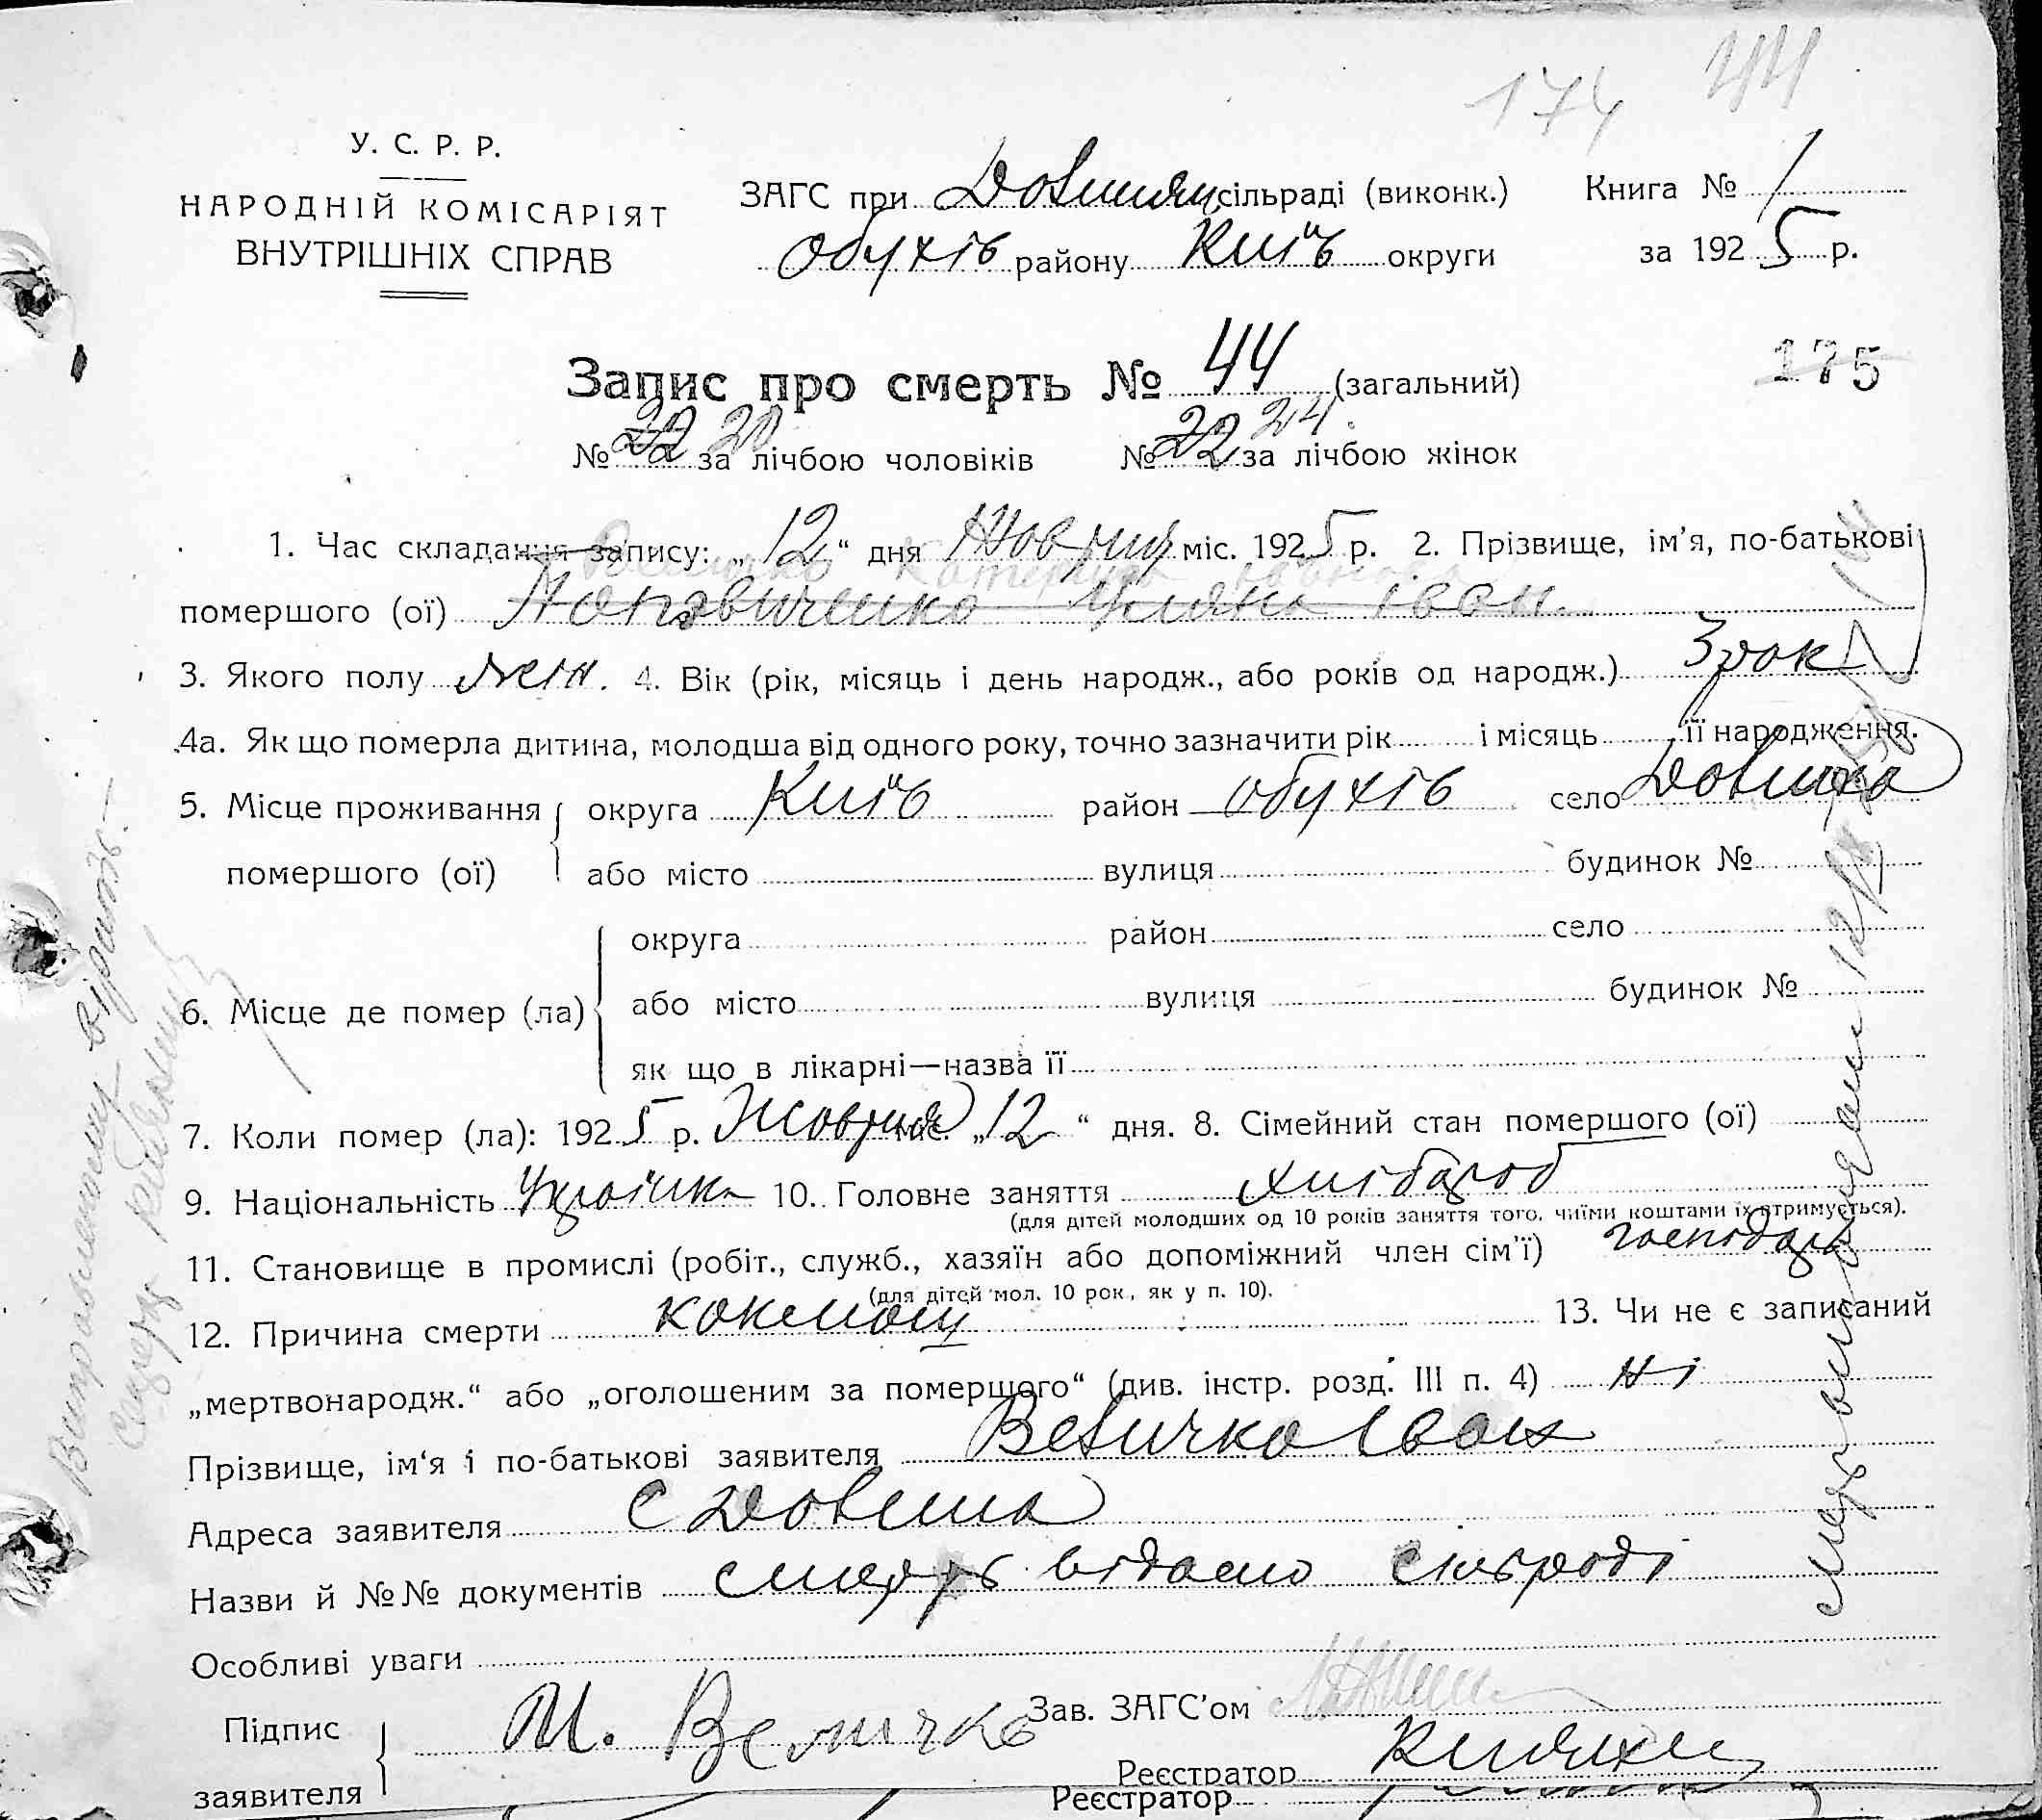 174 44
У. С. Р. Р.
НАРОДНІЙ КОМІСАРІЯТ
ВНУТРІШНІХ СПРАВ
ЗАГС при сільраді (виконк.) Книга № 1
Обухів району Київ округи за 1925 р.
Запис про смерть № 44 (загальний) 175
№ 22 20 за лічбою чоловіків № 22 24. за лічбою жінок
1. Час складання запису: „12“ дня Жовтня міс. 1925 р. 2. Прізвище, ім’я, по-батькові
Величко Катерина Іванова
помершого (ої) Поповиченко Уляна Іван.
3. Якого полу жін. 4. Вік (рік, місяць і день народж., або років од народж.) 3 рок
4а. Як що померла дитина, молодша від одного року, точно зазначити рік і місяць її народження.
5. Місце проживання округа Київ район Обухів село
помершого (ої) або місто вулиця будинок №
округа район село
6. Місце де помер (ла) або місто вулиця будинок №
як що в лікарні—назва її
7. Коли помер (ла): 1925 р. Жовтня міс. „12“ дня. 8. Сімейний стан помершого (ої)
9. Національність Україинк 10. Головне заняття хлібороб
(для дітей молодших од 10 років заняття того, чиїми коштами їх втримується).
11. Становище в промислі (робіт., служб., хазяїн або допоміжний член сім’ї) господарь
(для дітей мол. 10 рок., як у п. 10).
12. Причина смерти коклюш 13. Чи не є записаний
„мертвонародж.“ або „оголошеним за помершого“ (див. інстр. розд. III п. 4) ні
Прізвище, ім‘я і по-батькові заявителя Величко Іван
Адреса заявителя с
Назви й №№ документів смерть відомо сільраді
Особливі уваги
Підпис
заявителя
И. Величко
Зав. ЗАГС’ом
Реєстратор
Реєстратор
Виправленому вірить.—